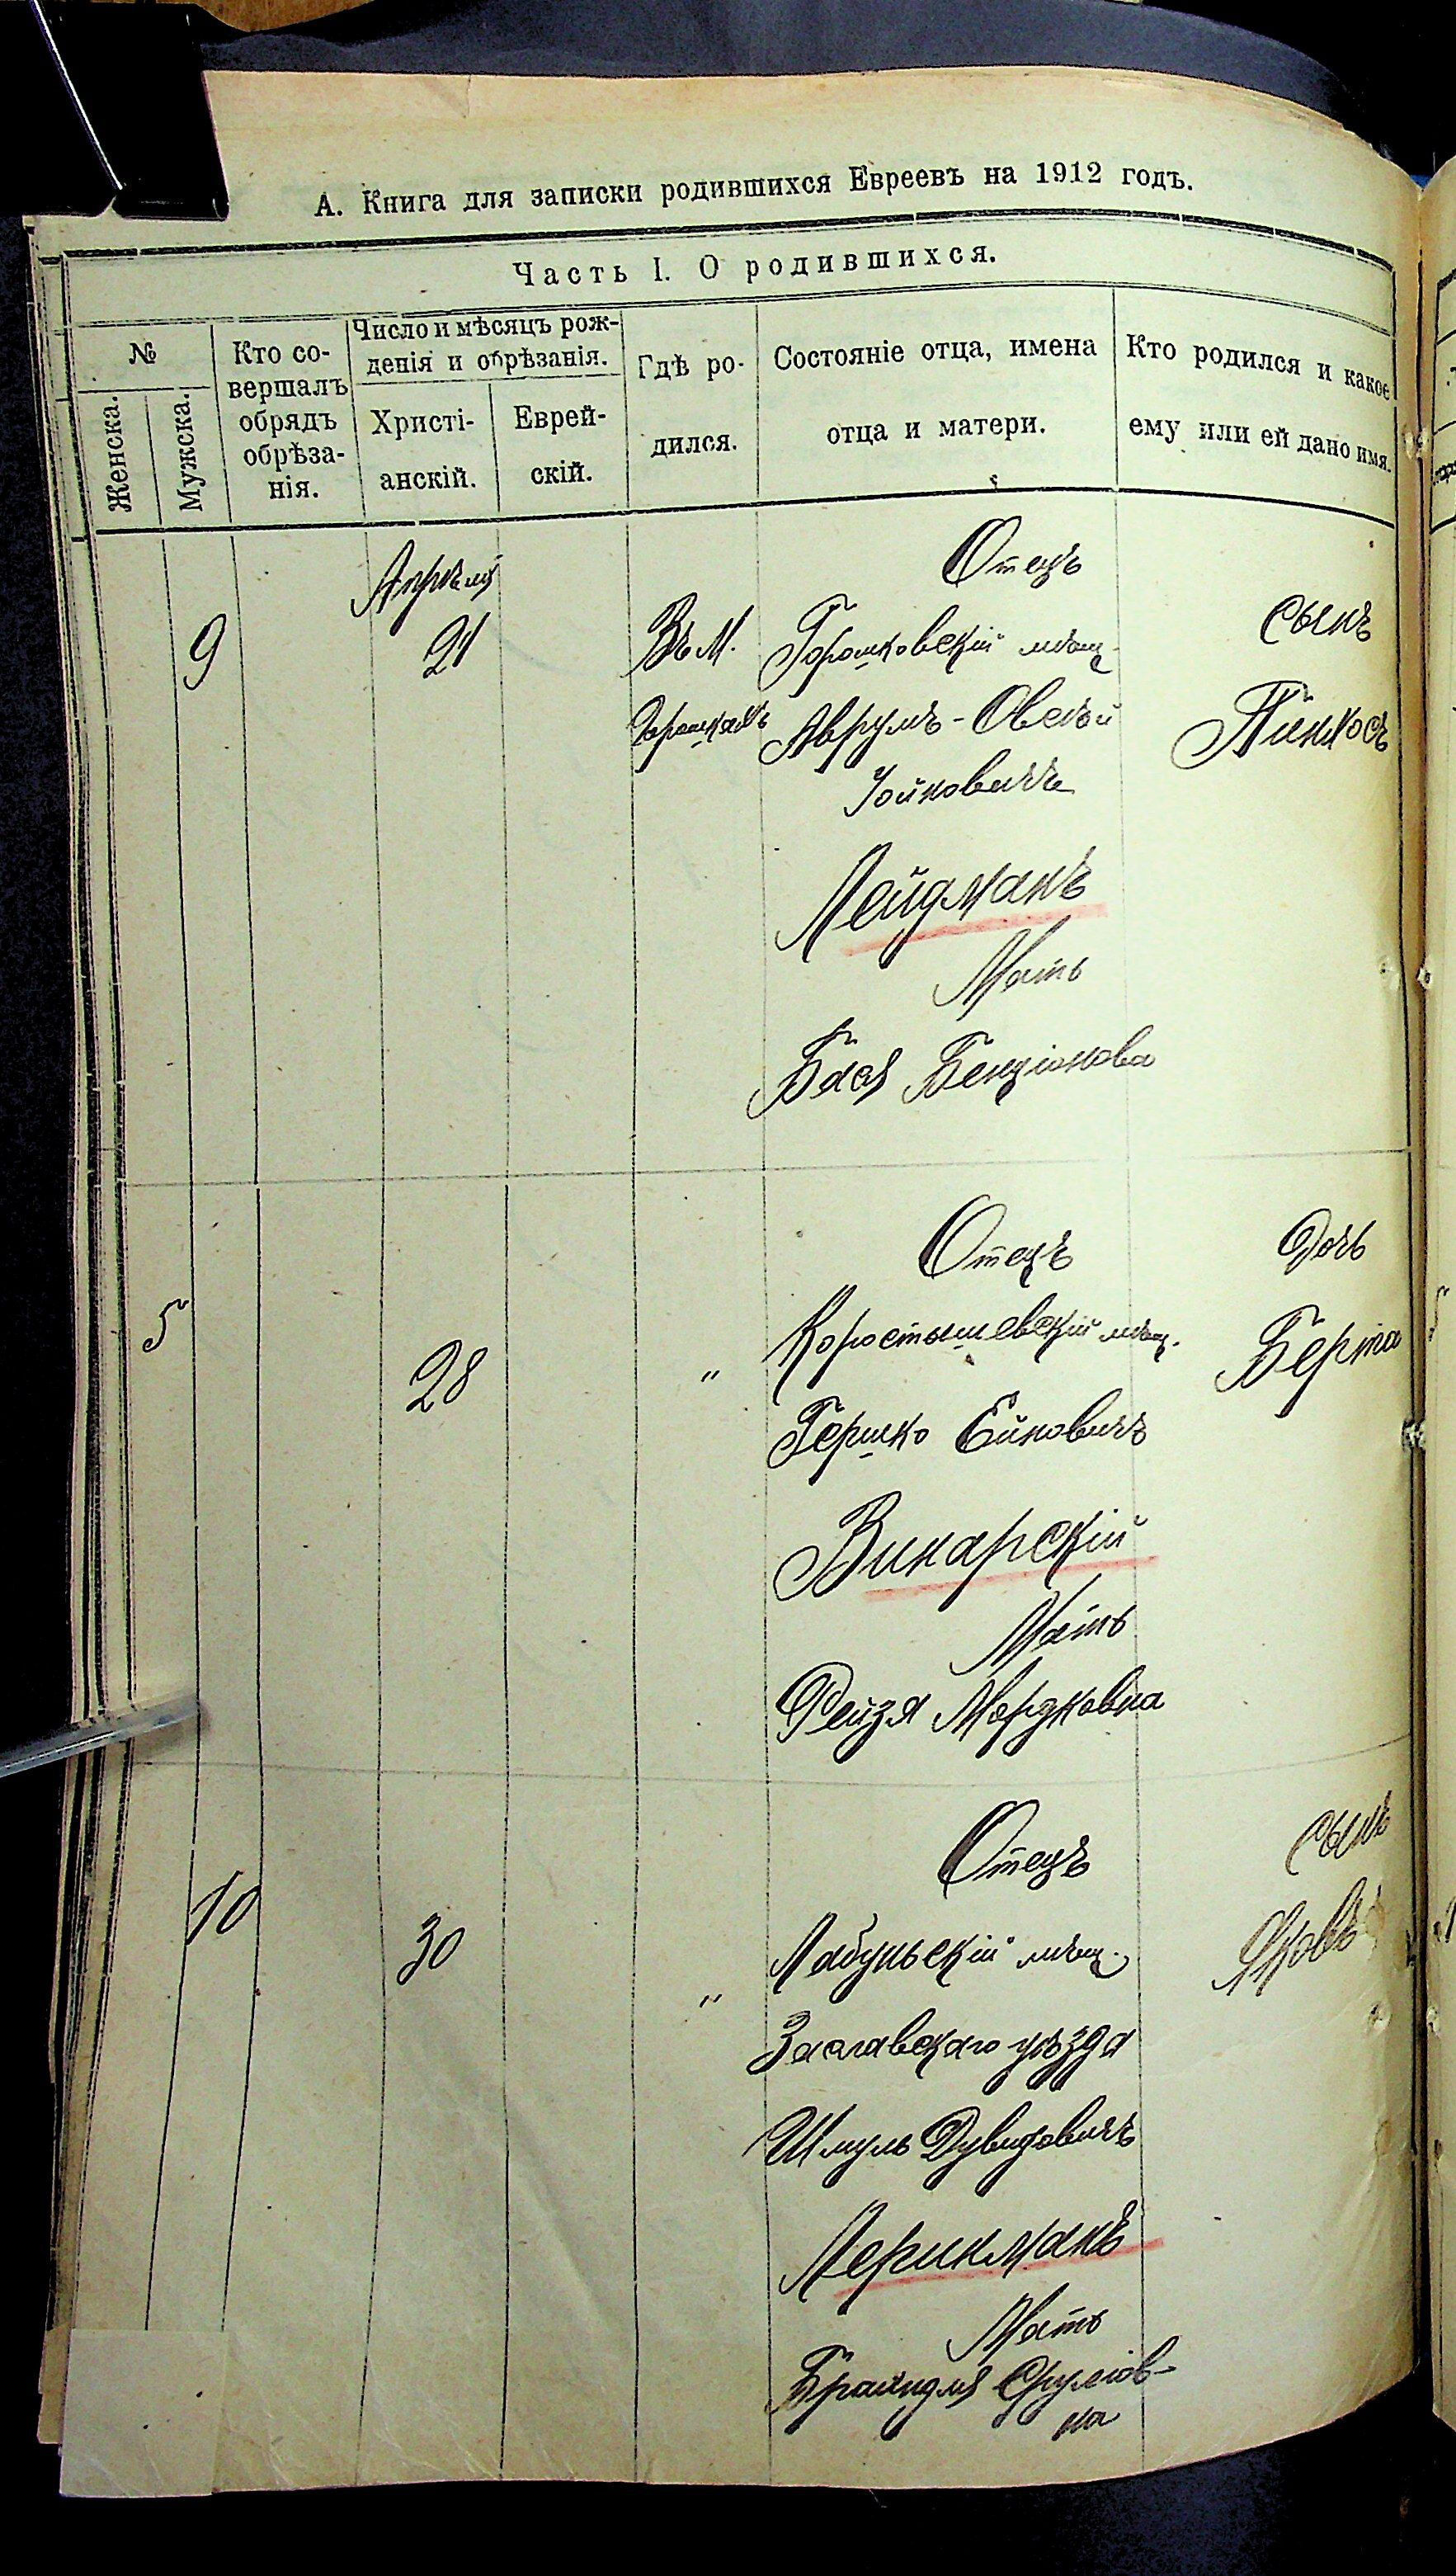 А. Книга для записки родившихся Евреевъ на 1912 годъ.
Часть I. О родившихся.
№
Женска.
Мужска.
Кто со-
вершалъ
обрядъ
обрѣза-
нія.
Число и мѣсяцъ рож-
денія и обрѣзанія.
Христі-
анскій.
Еврей-
скій.
Гдѣ ро-
дился.
Состояніе отца, имена
отца и матери.
Кто родился и какое
ему или ей дано имя.
9
Апрѣля
21
Въ М.
Горошкахъ
Отецъ
Горошковскій мѣщ.
Аврумъ-Овсей
Іойновичъ
Лейдманъ
Мать
Бася Бенціонова
сынъ
Пинхосъ
5
28
"
Отецъ
Коростышевскій мѣщ.
Гершко Ейновичъ
Винарскій
Мать
Рейзя Мордковна
Дочь
Берта
10
30
"
Отецъ
Лабунскій мѣщ.
Заславскаго уѣзда
Шмуль Дувидовичъ
Лерикманъ
Мать
Брайндля Срулов-
на
сынъ
Яковъ